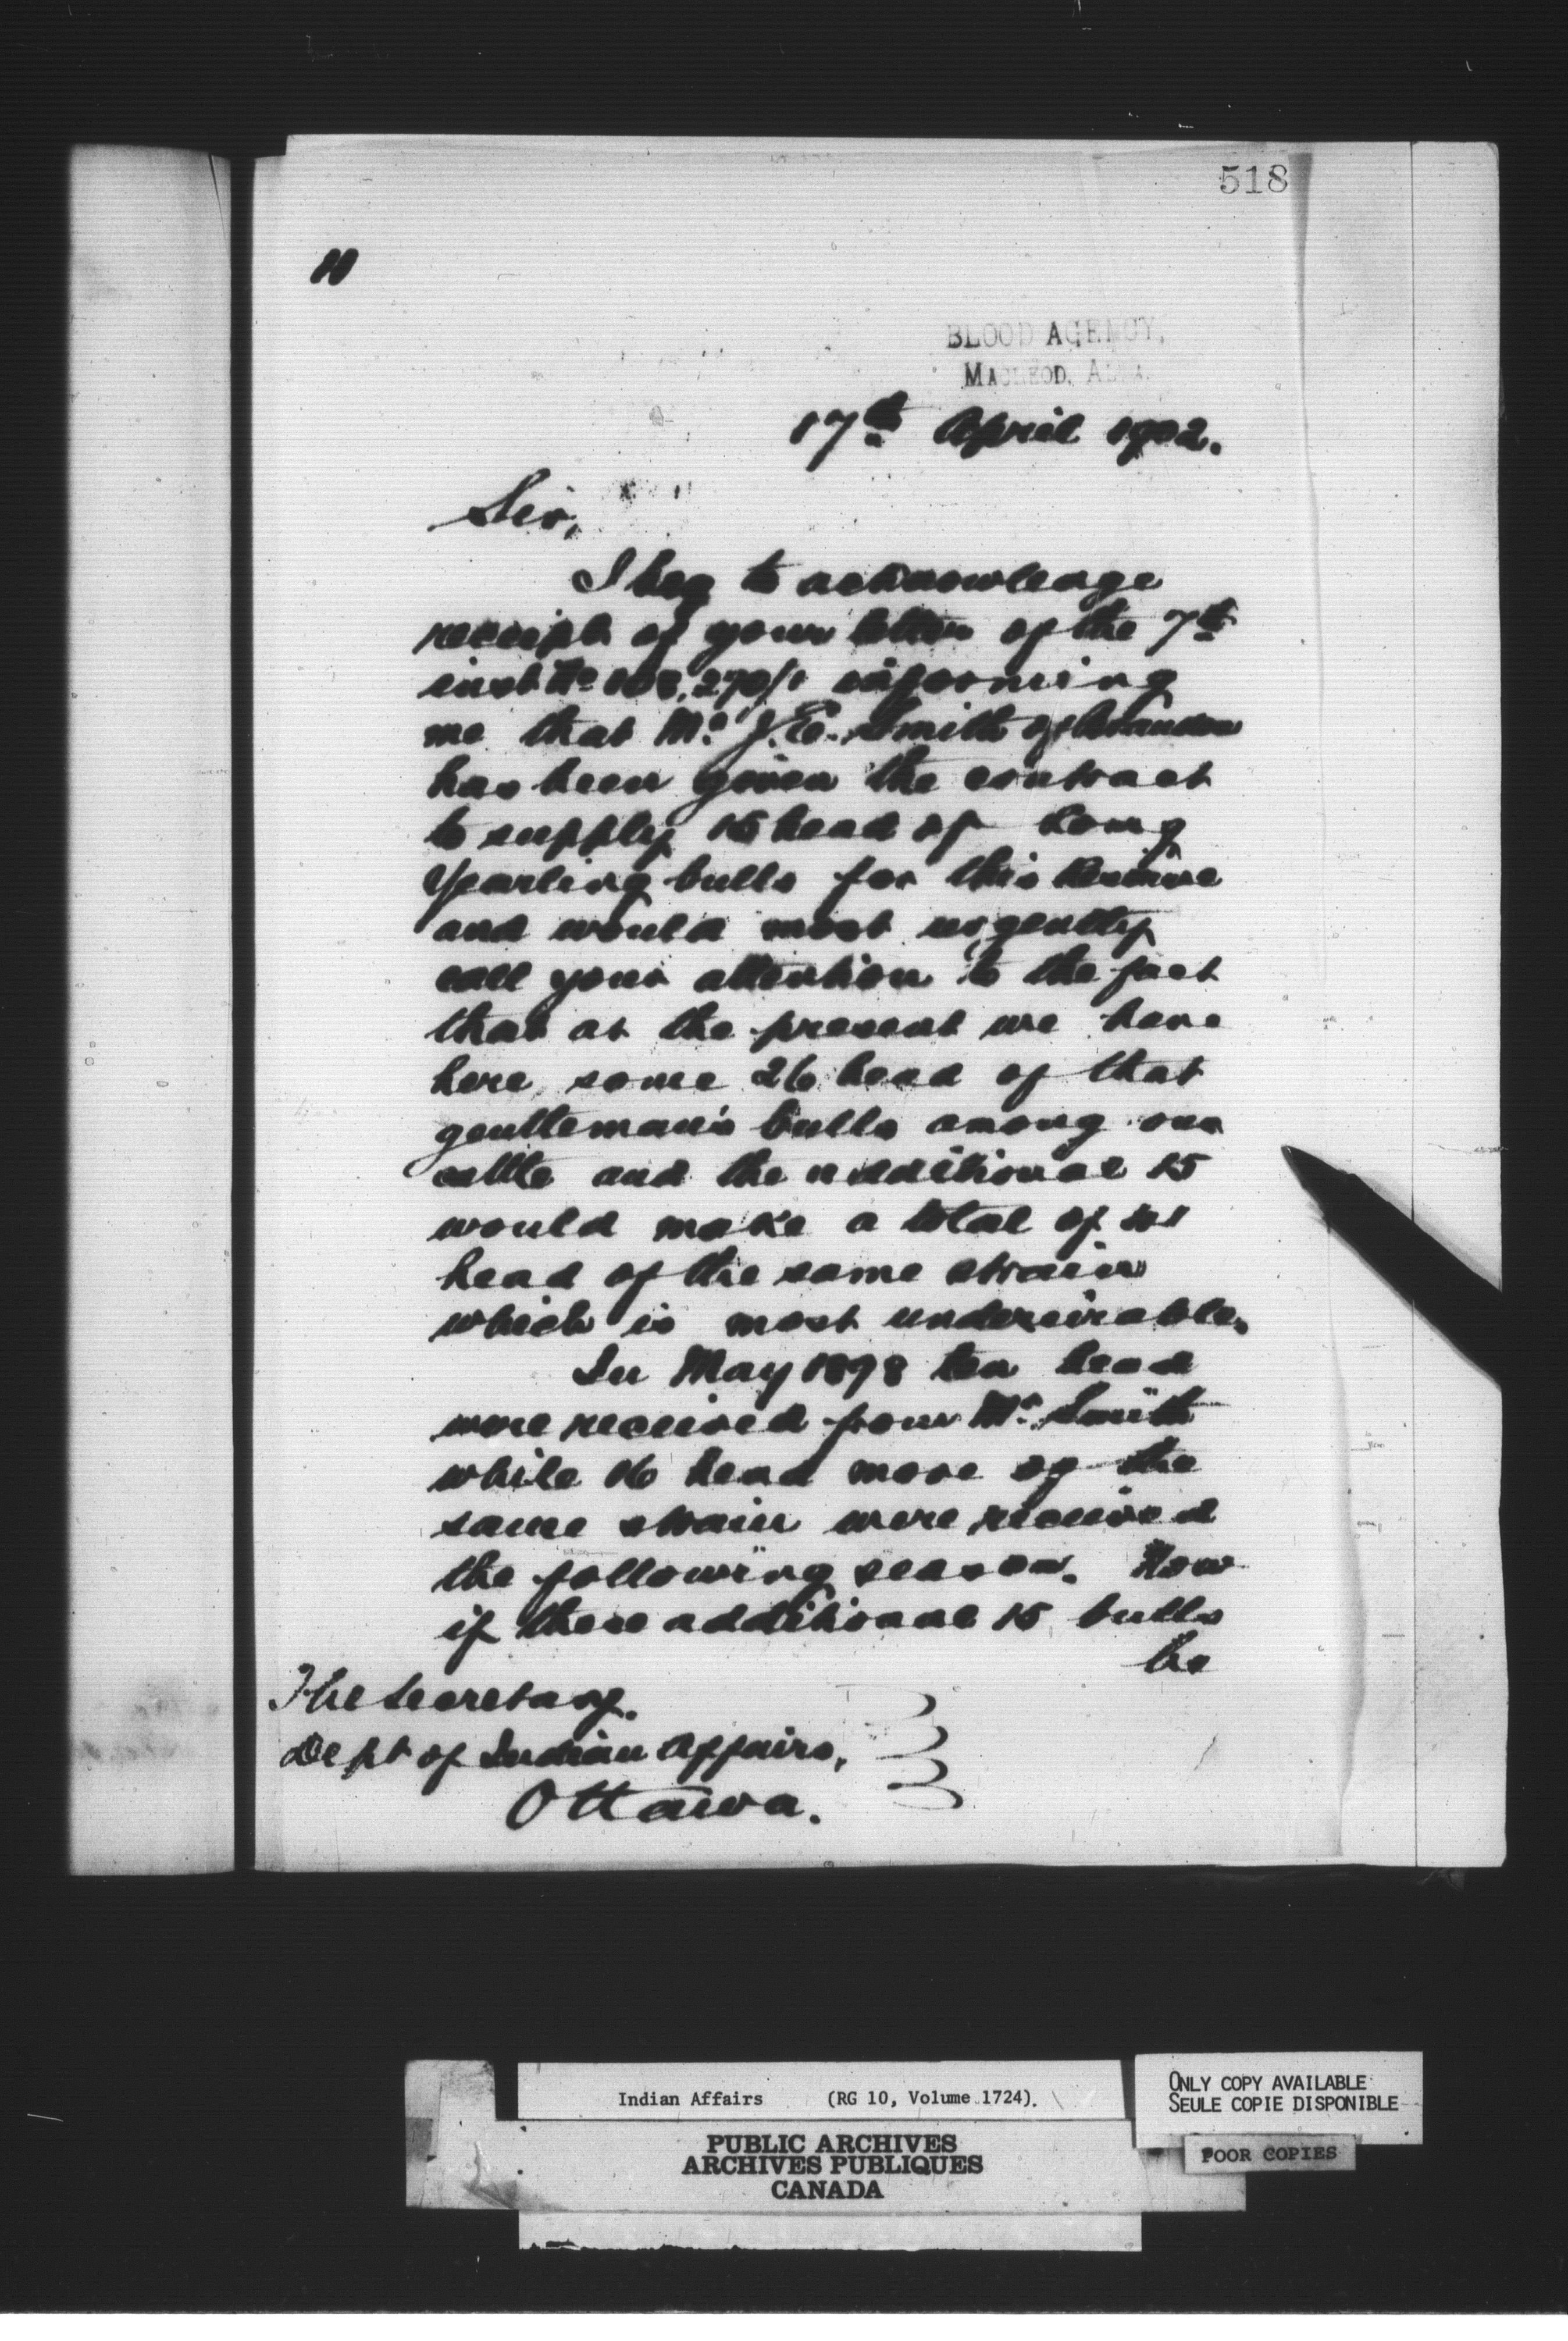 518
BLOOD AGENCY,
MACLEOD, ALTA.
17th April 1902.
Sir,
I beg to acknowledge
receipt of your letter of the 7th
inst No 108,270/1 informing
me that Mr J.E. Smith of Brandon
has been given the contract
to supply 15 head of Long
Yearling bulls for this Reserve
and would most urgently
call your attention to the fact
that at the present we have
here some 26 head of that
gentleman's bulls among our
cattle and the additional 15
would make a total of 41
head of the same strain
which is most undesirable.
In May 1898 ten head
were received from Mr Smith
while 16 head more of the
same strain were received
the following season. Now
if these additional 15 bulls
be
The Secretary.
Dept of Indian Affairs,
Ottawa.
Indian Affairs (RG 10, Volume 1724).
PUBLIC ARCHIVES
ARCHIVES PUBLIQUES
CANADA
ONLY COPY AVAILABLE
SEULE COPIE DISPONIBLE
POOR COPIES